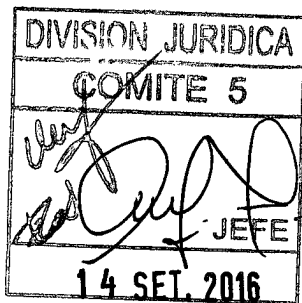 DIVISION JURIDICA
COMITE 5
JEFE
14 SET. 2016